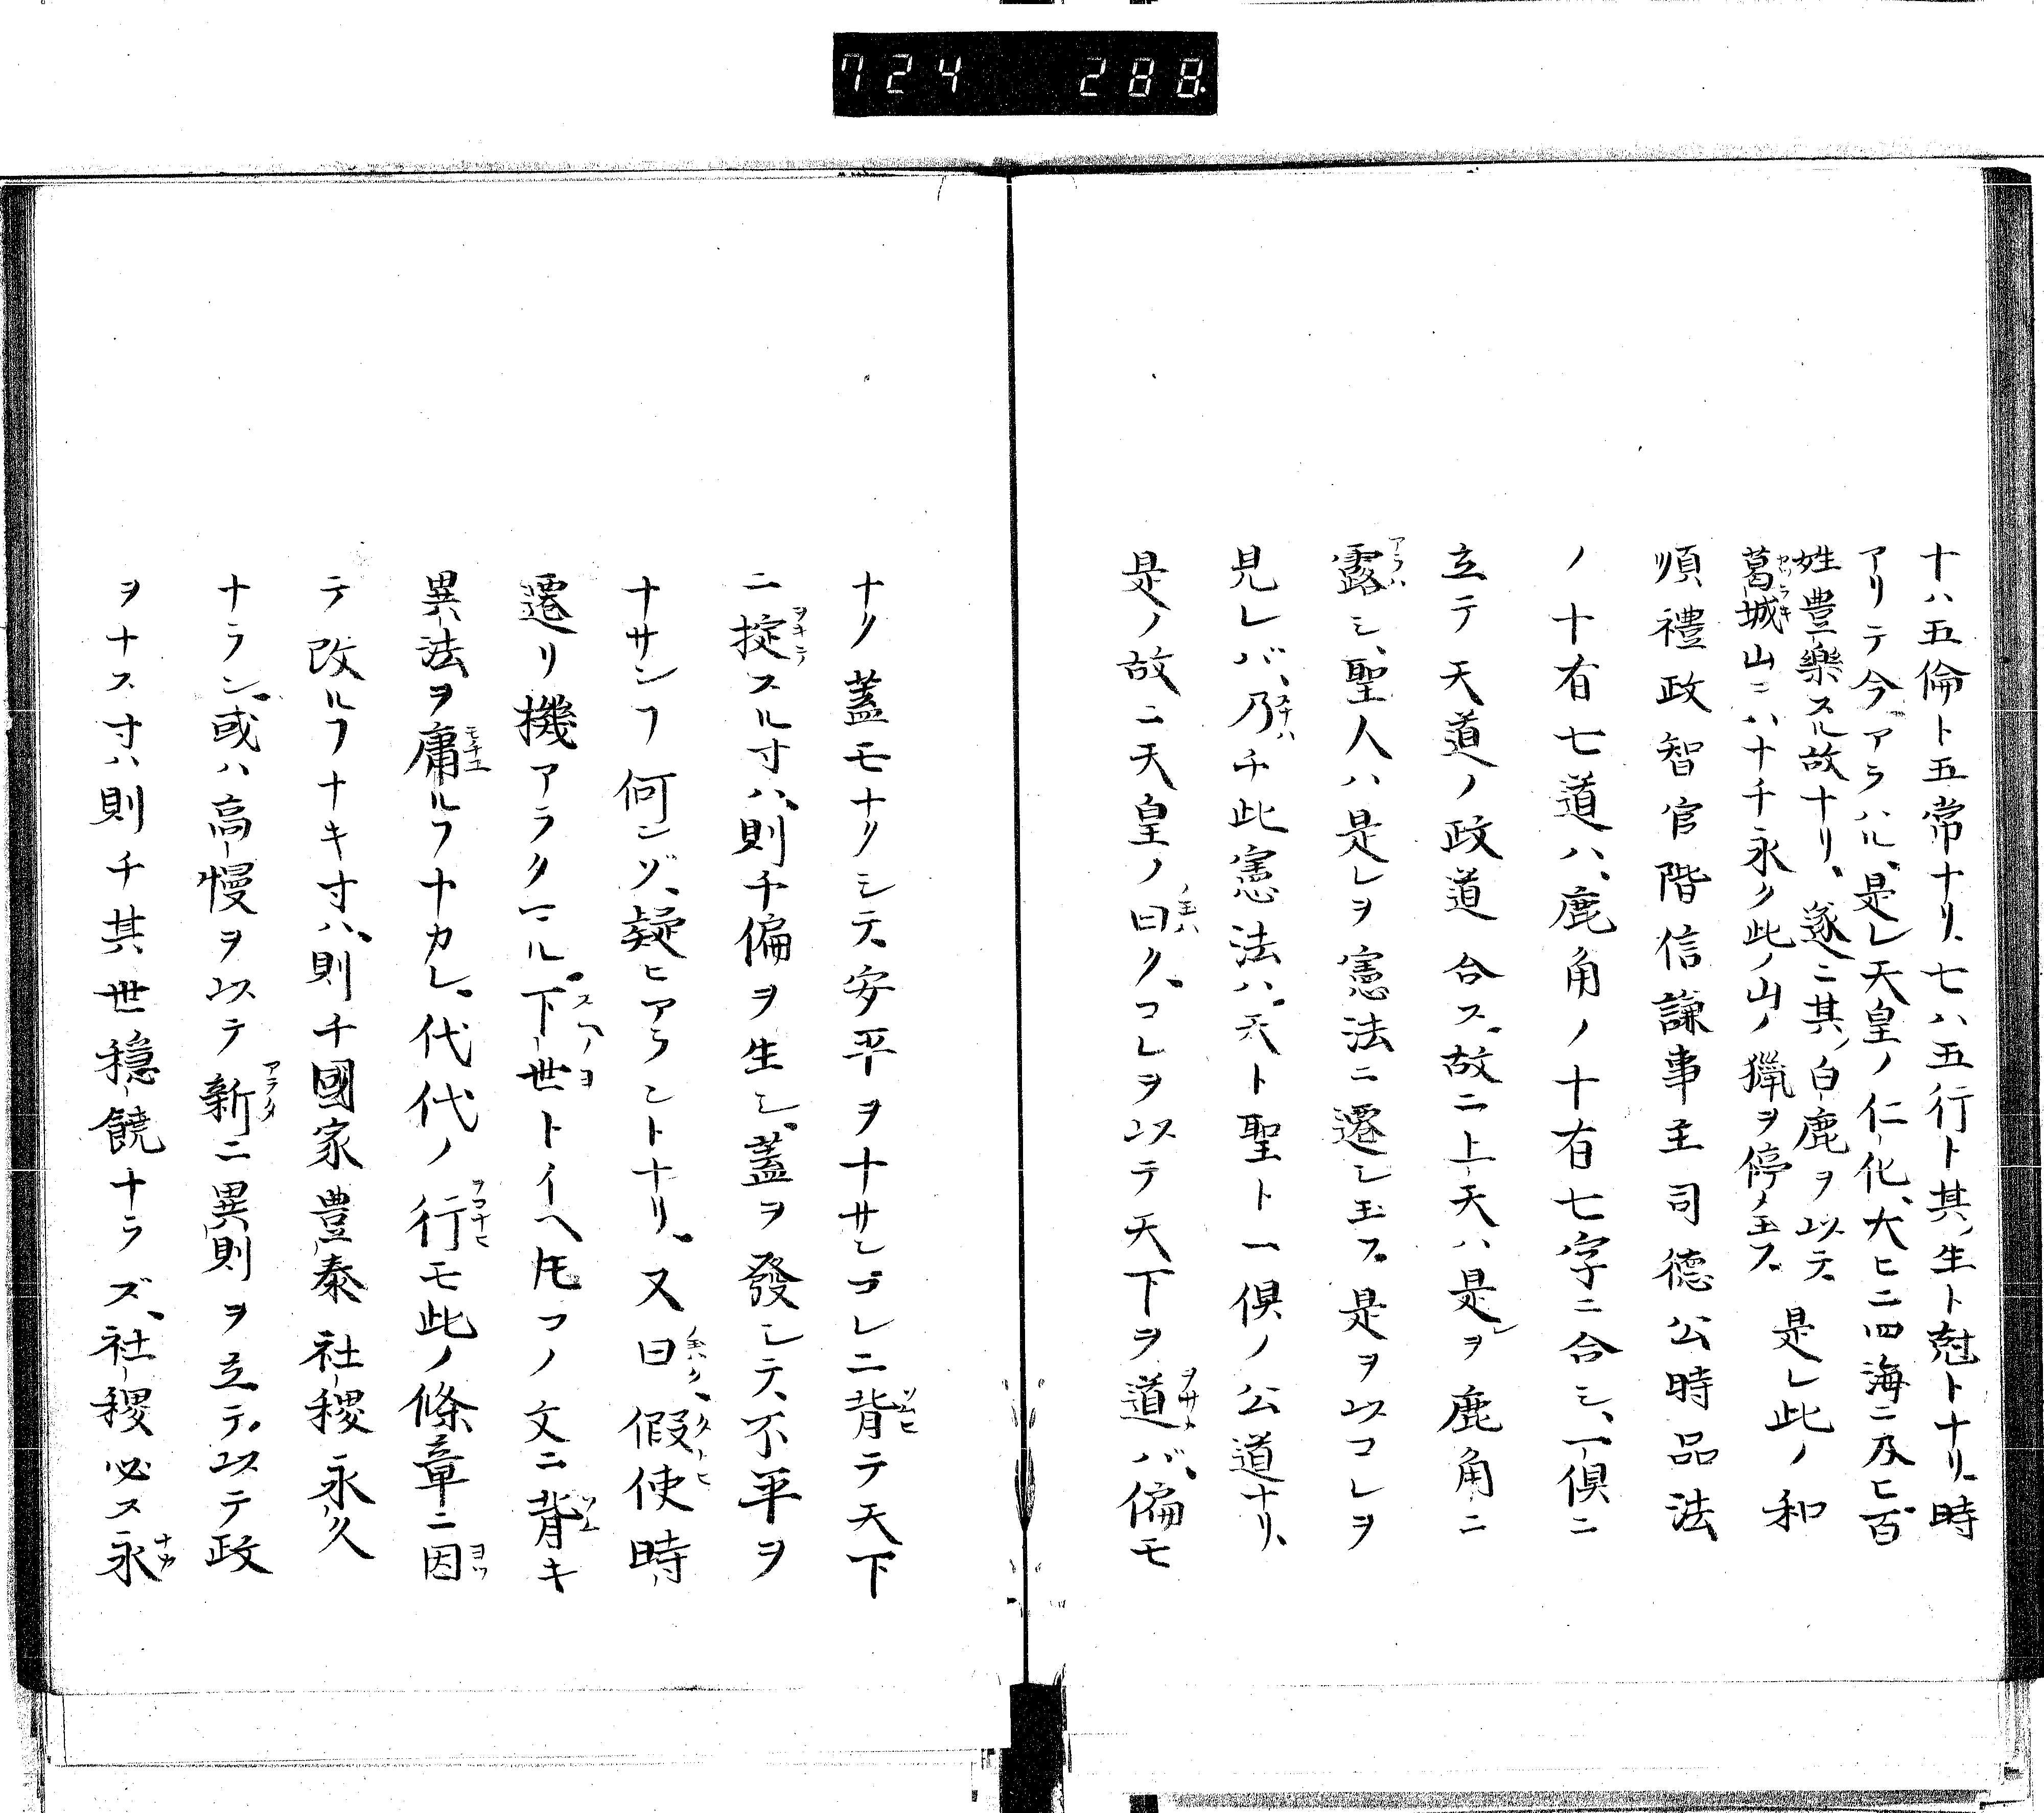 724 288
十ハ五倫ト五常ナリ、七ハ五行ト其ノ生ト尅トナリ、時
アリテ今アラハル、是レ天皇ノ仁化、大ヒニ四海ニ及ヒ百
姓豊樂スル故ナリ、遂ニ其ノ白鹿ヲ以テ
葛城山ニハナチ永ク此ノ山ノ獵ヲ停メ玉フ、
是レ此ノ和
順禮政智官階信謙事主司德公時品法
ノ十有七道ハ、鹿角ノ十有七字ニ合シ、一倶ニ
立テ天道ノ政道合ス、故ニ上天ハ是レヲ鹿角ニ
露シ、聖人ハ是レヲ憲法ニ遷シ玉フ、是ヲ以コレヲ
見レバ、乃チ此憲法ハ、天ト聖ト一倶ノ公道ナリ、
是ノ故ニ天皇ノ曰ク、コレヲ以テ天下ヲ道バ、偏モ
ナク蓋モナクシテ、安平ヲナサンコレニ背テ天下
ニ掟スル寸ハ、則チ偏ヲ生シ、蓋ヲ發シテ、不平ヲ
ナサンフ何ンゾ、疑ヒアランヤトナリ、又曰假使時
遷リ機アラタマル、下世トイヘ𪜈コノ文ニ背キ
異法ヲ庸ルフナカレ、代代ノ行モ此ノ條章ニ因
テ改ルフナキ寸ハ、則チ國家豊泰社稷永久
ナラン、或ハ高慢ヲ以テ新ニ異則ヲ立テ、以テ政
ヲナス寸ハ則チ其世穏饒ナラズ、社稷必ス永